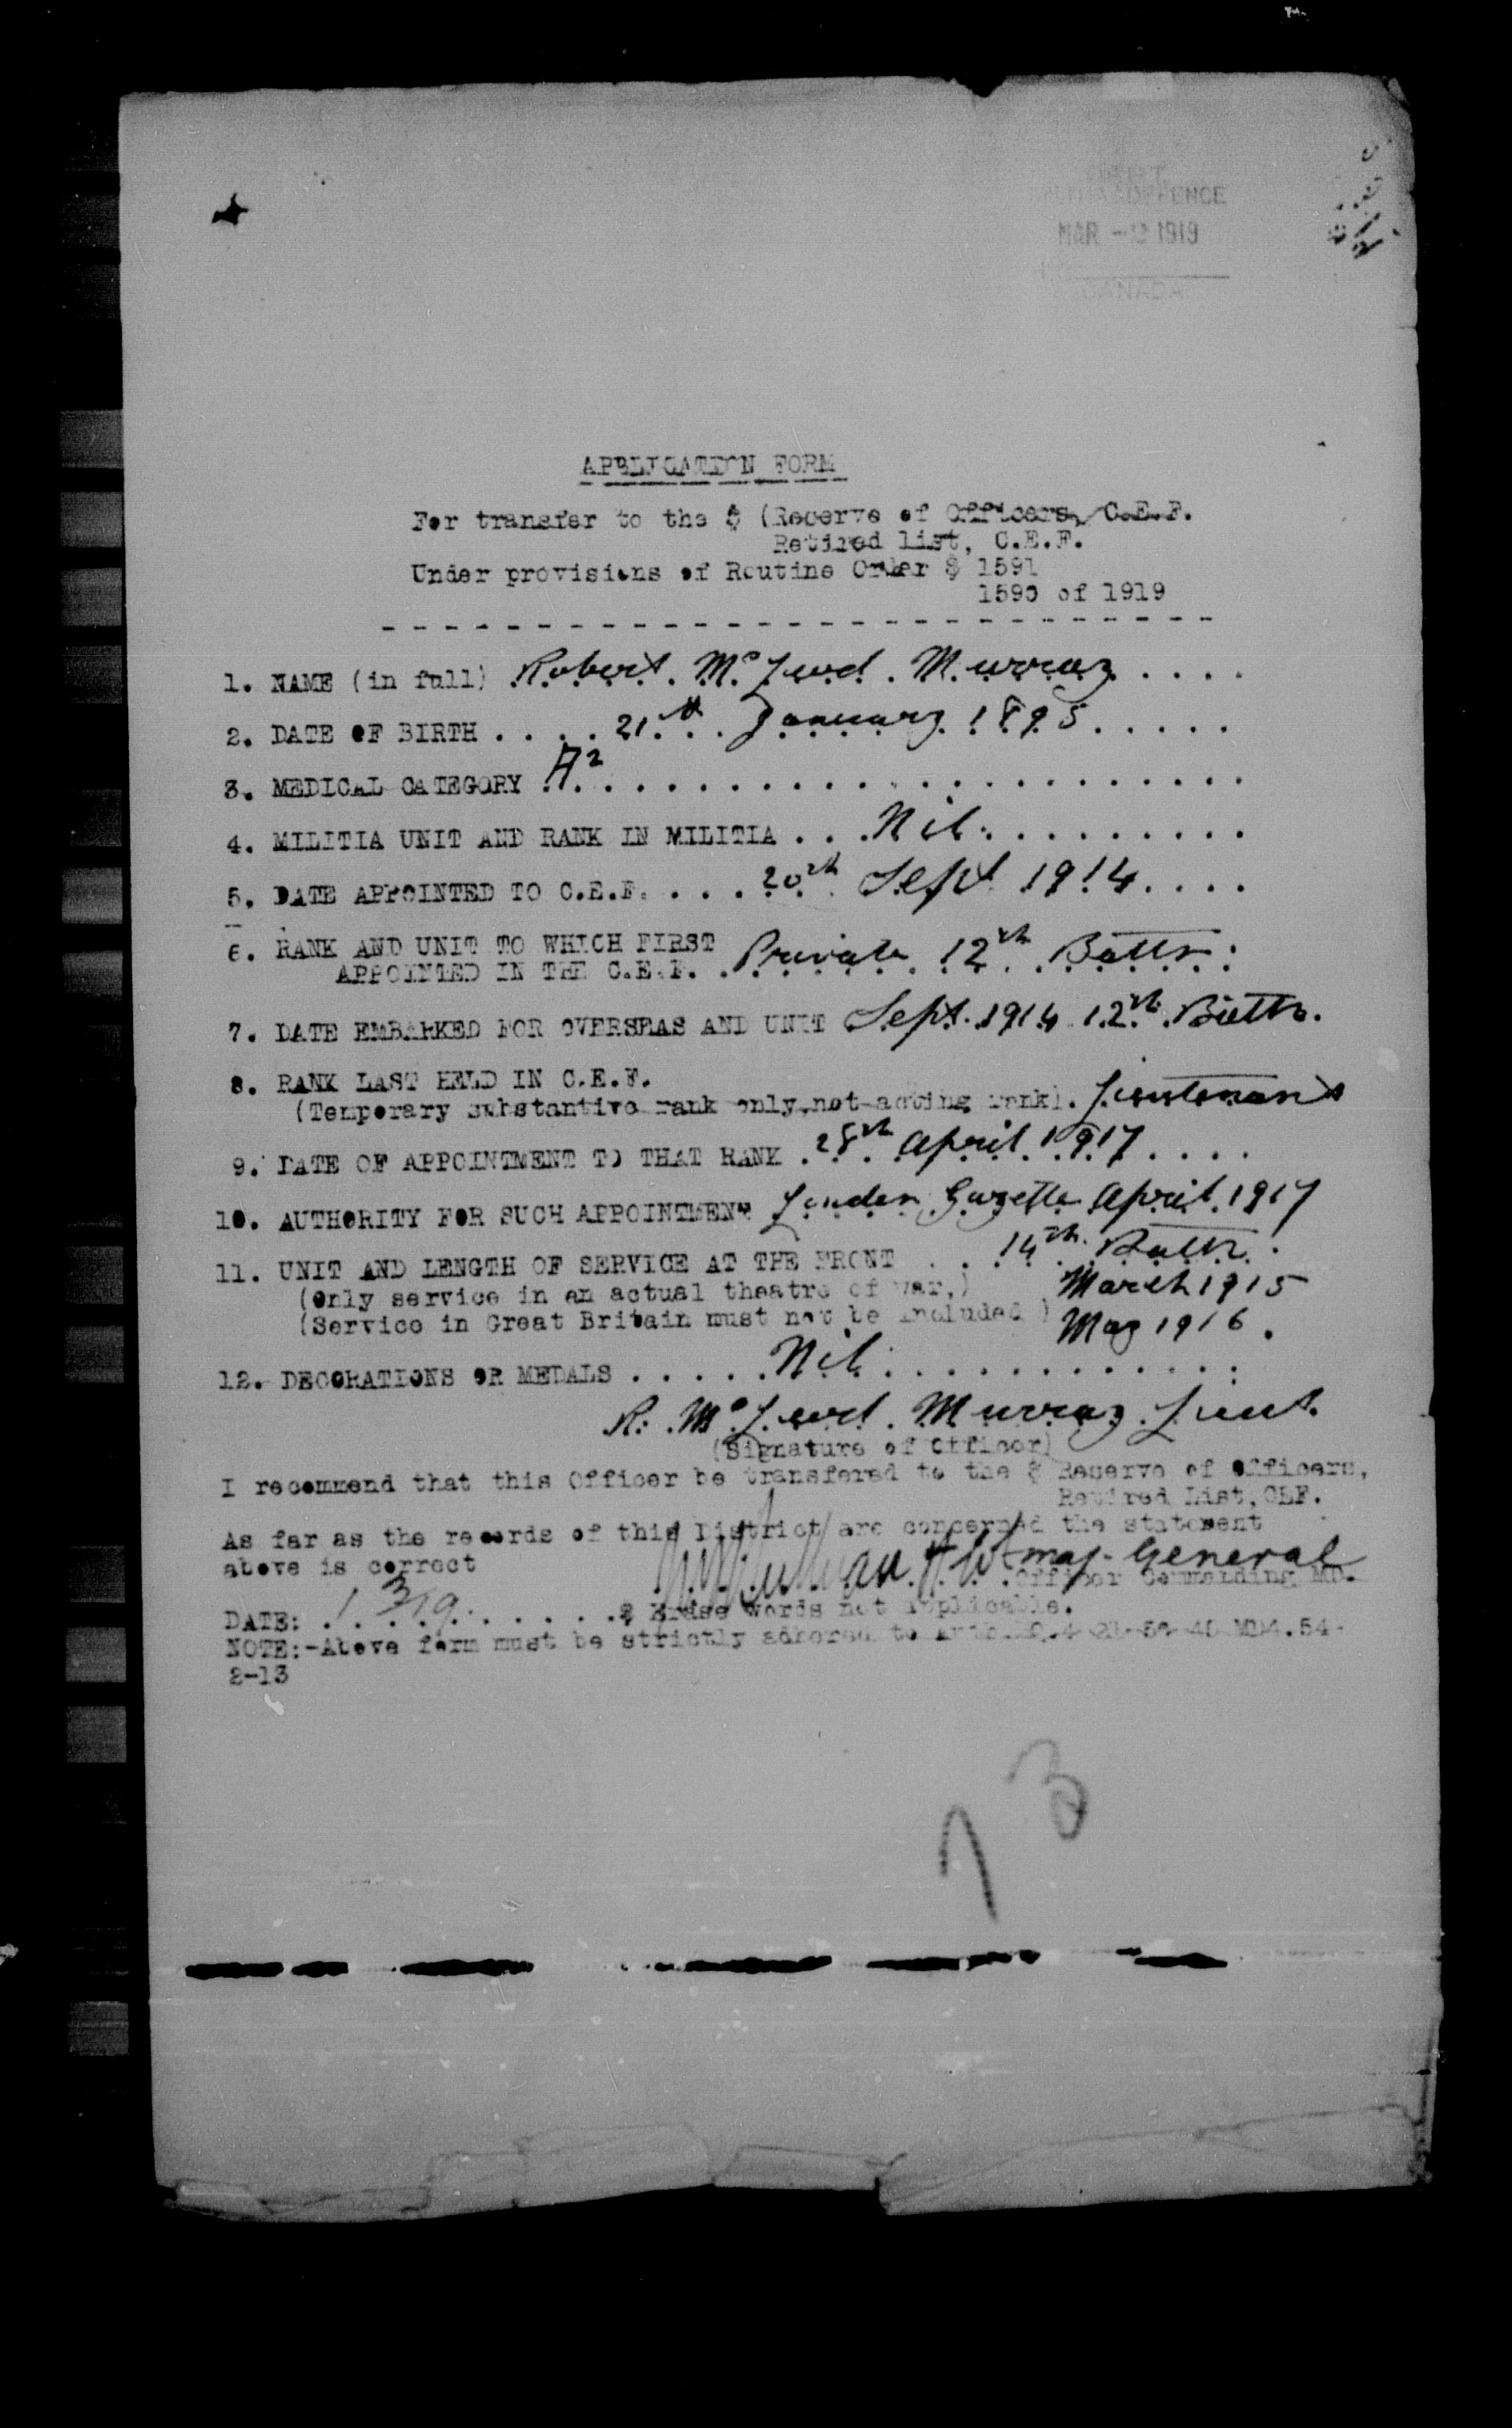 DEFENCE
MAR - 1919
CANADA
APPLICATION FORM
For transfer to the $ (Reserve of Officers, C.E.F.
Retired list, C.E.F.
Under provisions of Routine Order $ 1591
1590 of 1919
1. NAME (in full) Robert McLeod Murray
2. DATE OF BIRTH . . . . 21st January 1895
3. MEDICAL CATEGORY A2
4. MILITIA UNIT AND RANK IN MILITIA . . . Nil
5. DATE APPOINTED TO C.E.F. . . . 20th Sept 1914
6. RANK AND UNIT TO WHICH FIRST
APPOINTED IN THE C.E.F. . Private 12th Battn.
7. DATE EMBARKED FOR OVERSEAS AND UNIT Sept. 1914 12th Battn.
8. RANK LAST HELD IN C.E.F.
(Temporary substantive rank only,not acting rank). Lieutenant
9. DATE OF APPOINTMENT TO THAT RANK . 28th April 1917
10. AUTHORITY FOR SUCH APPOINTMENT London Gazette April 1917
11. UNIT AND LENGTH OF SERVICE AT THE FRONT . . . 14th Battn.
(Only service in an actual theatre of war,) March 1915
(Service in Great Britain must not be included ) May 1916.
12. DECORATIONS OR MEDALS . . . . . Nil
R. McLeod Murray Lieut.
(Signature of Officer)
I recommend that this Officer be transfered to the $ Reserve of Officers,
Retired List, CEF.
As far as the records of this District are concerned the statement
above is correct
Maj-General
Officer Commanding MD.
DATE: 1 3 19 $ Erase words not applicable.
NOTE:-Above form must be strictly adhered to MD4.54-
2-13
13